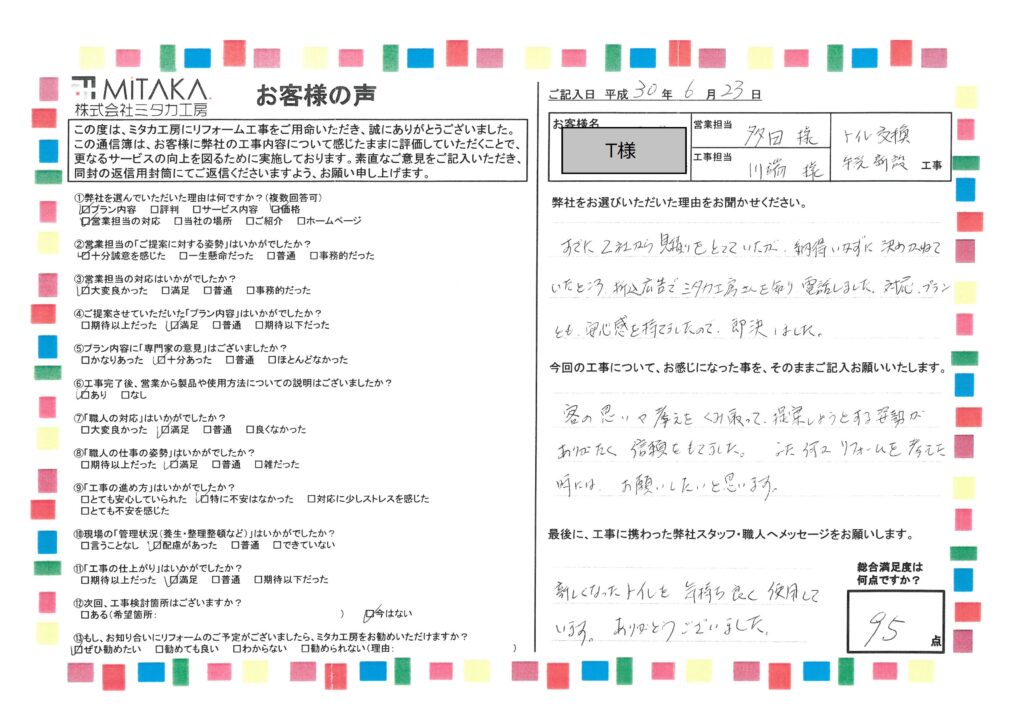 MiTAKA
株式会社ミタカ工房
お客様の声
この度は、ミタカ工房にリフォーム工事をご用命いただき、誠にありがとうございました。
この通信簿は、お客様に弊社の工事内容について感じたままに評価していただくことで、
更なるサービスの向上を図るために実施しております。素直なご意見をご記入いただき、
同封の返信用封筒にてご返信くださいますよう、お願い申し上げます。
①弊社を選んでいただいた理由は何ですか?(複数回答可)
☑プラン内容 □評判 □サービス内容 ☑価格
☑営業担当の対応 □当社の場所 □ご紹介 □ホームページ
②営業担当の「ご提案に対する姿勢」はいかがでしたか?
☑十分誠意を感じた □一生懸命だった □普通 □事務的だった
③営業担当の対応はいかがでしたか?
☑大変良かった □満足 □普通 □事務的だった
④ご提案させていただいた「プラン内容」はいかがでしたか?
□期待以上だった ☑満足 □普通 □期待以下だった
⑤プラン内容に「専門家の意見」はございましたか?
□かなりあった ☑十分あった □普通 □ほとんどなかった
⑥工事完了後、営業から製品や使用方法についての説明はございましたか?
☑あり □なし
⑦「職人の対応」はいかがでしたか?
□大変良かった ☑満足 □普通 □良くなかった
⑧「職人の仕事の姿勢」はいかがでしたか?
□期待以上だった ☑満足 □普通 □雑だった
⑨「工事の進め方」はいかがでしたか?
□とても安心していられた ☑特に不安はなかった □対応に少しストレスを感じた
□とても不安を感じた
⑩現場の「管理状況(養生・整理整頓など)」はいかがでしたか?
□言うことなし ☑配慮があった □普通 □できていない
⑪「工事の仕上がり」はいかがでしたか?
□期待以上だった ☑満足 □普通 □期待以下だった
⑫次回、工事検討箇所はございますか?
□ある(希望箇所: ) ☑今はない
⑬もし、お知り合いにリフォームのご予定がございましたら、ミタカ工房をお勧めいただけますか?
☑ぜひ勧めたい □勧めても良い □わからない □勧められない(理由: )
ご記入日 平成 30 年 6 月 23 日
お客様名
T様
営業担当 多田 様
工事担当 川端 様
トイレ交換
新設 工事
弊社をお選びいただいた理由をお聞かせください。
すでに2社から見積りをとっていたが、納得いかずに決めかねて
いたところ 折込広告でミタカ工房さんを知り電話しました。対応、プラン
とも、安心感を持てましたので、即決しました。
今回の工事について、お感じになった事を、そのままご記入お願いいたします。
客の思いや考えをくみ取って、提案しようとする姿勢が
ありがたく 信頼をもてました。 また何かリフォームを考えた
時には、お願いしたいと思います。
最後に、工事に携わった弊社スタッフ・職人へメッセージをお願いします。
新しくなったトイレを 気持ち良く 使用して
います。ありがとうございました。
総合満足度は
何点ですか?
95 点